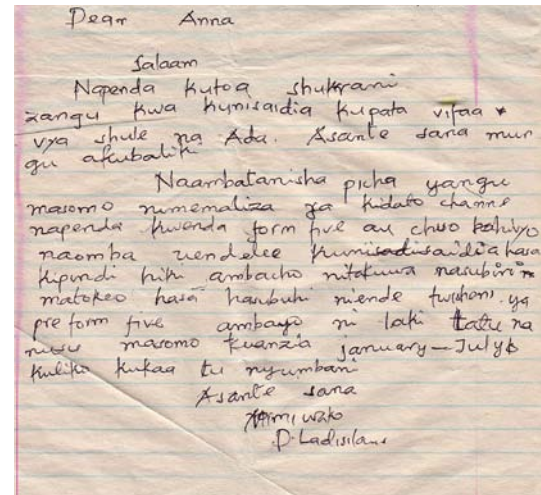 Dear Anna
Salaam
Napenda Kutoa shukrani
zangu kwa kunisaidia kupata vifaa
vya shule na Ada. Asante sana mun
gu akubaliki
Naambatanisha picha yangu
masomo nimemaliza ya kidato channe
napenda kwenda form five au chuo kahivyo
naomba uendelee hasa
kipindi hiki ambacho nitakuwa nasubiri
matokeo hasa hasubuhi niende twisheni ya
pre form five ambayo ni laki tatu na
nusu masomo kuanzia january - July
kuliko kukaa tu nyumbani
Asante sana
Nimi wako
D. Ladisilaus